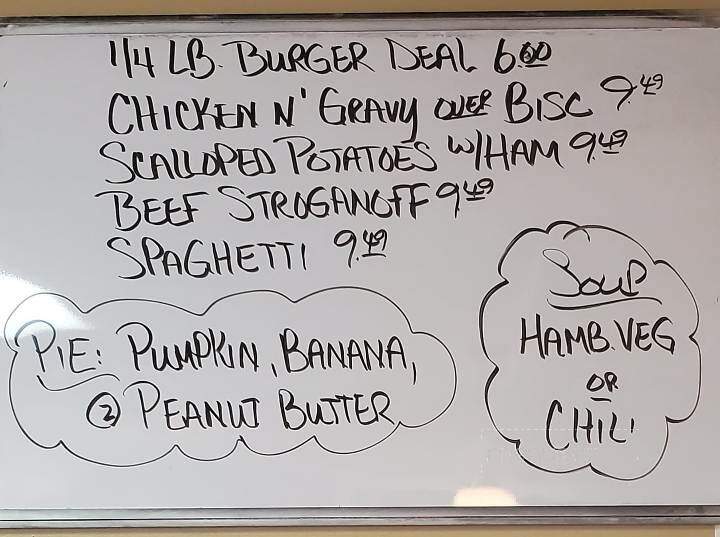 1/4 LB. BURGER DEAL 6.00
CHICKEN N' GRAVY OVER BISC 9.49
SCALLOPED POTATOES W/HAM 9.49
BEEF STROGANOFF 9.49
SPAGHETTI 9.49
PIE: PUMPKIN, BANANA,
② PEANUT BUTTER
SOUP
HAMB. VEG
OR
CHILI